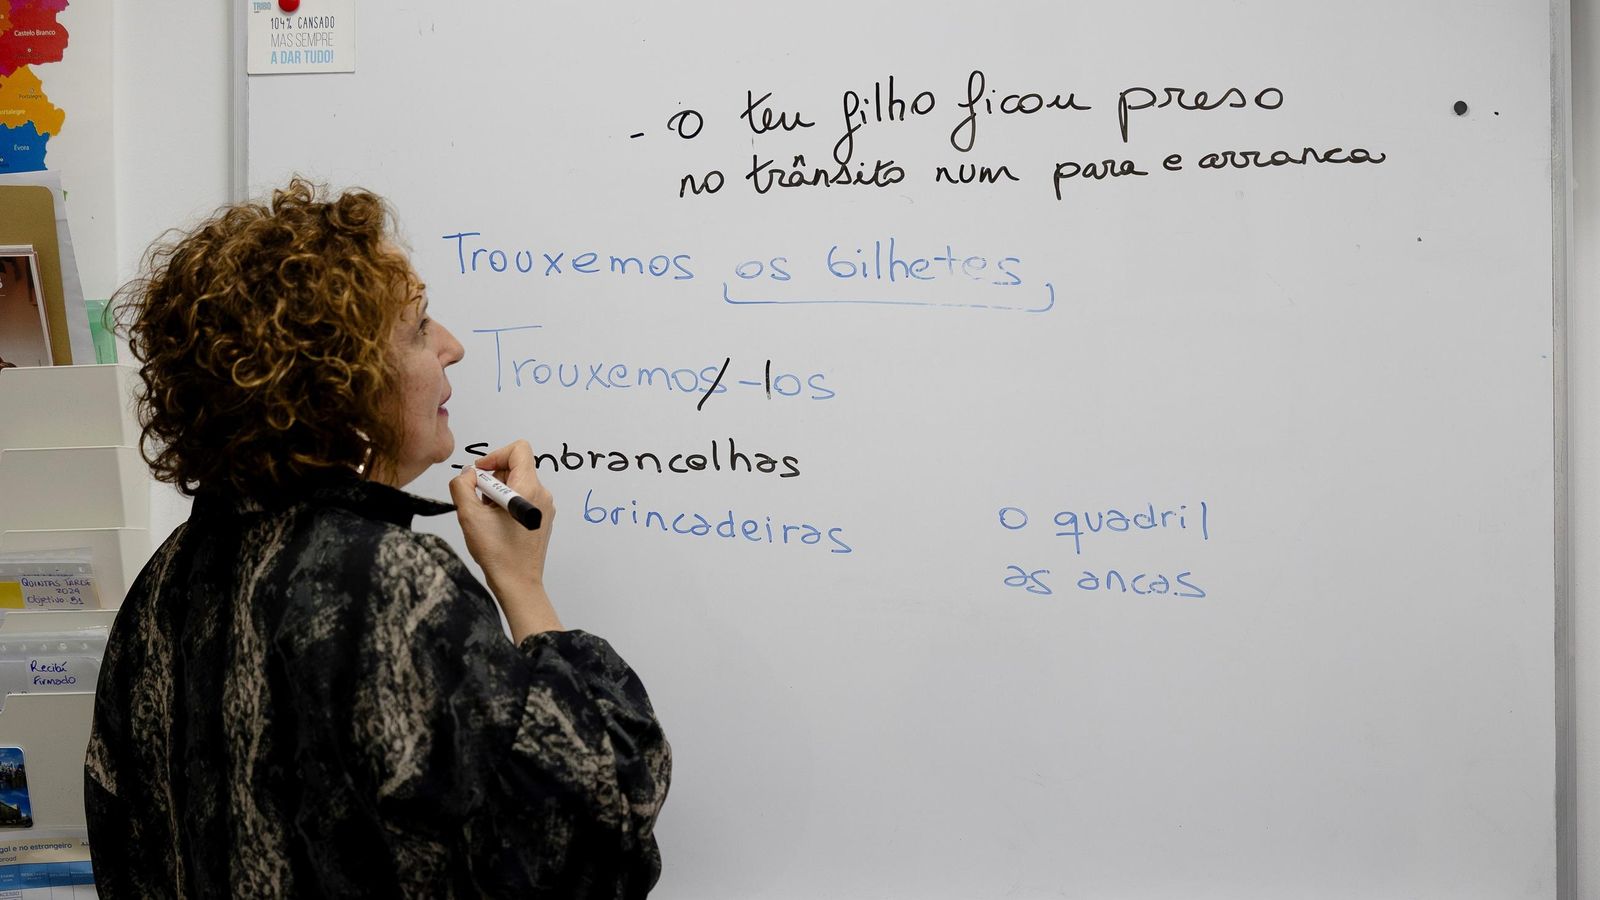 TRIBO
104% CANSADO
MAS SEMPRE
A DAR TUDO!
Castelo Branco
Portalegre
Évora
- O teu filho ficou preso
no trânsito num para e arranca
Trouxemos os bilhetes
Trouxemos -los
nbrancelhas
brincadeiras
o quadril
as ancas
QUINTAS TARDE
2024
Objetivo B1
Recibí
Firmado
gal e no estrangeiro